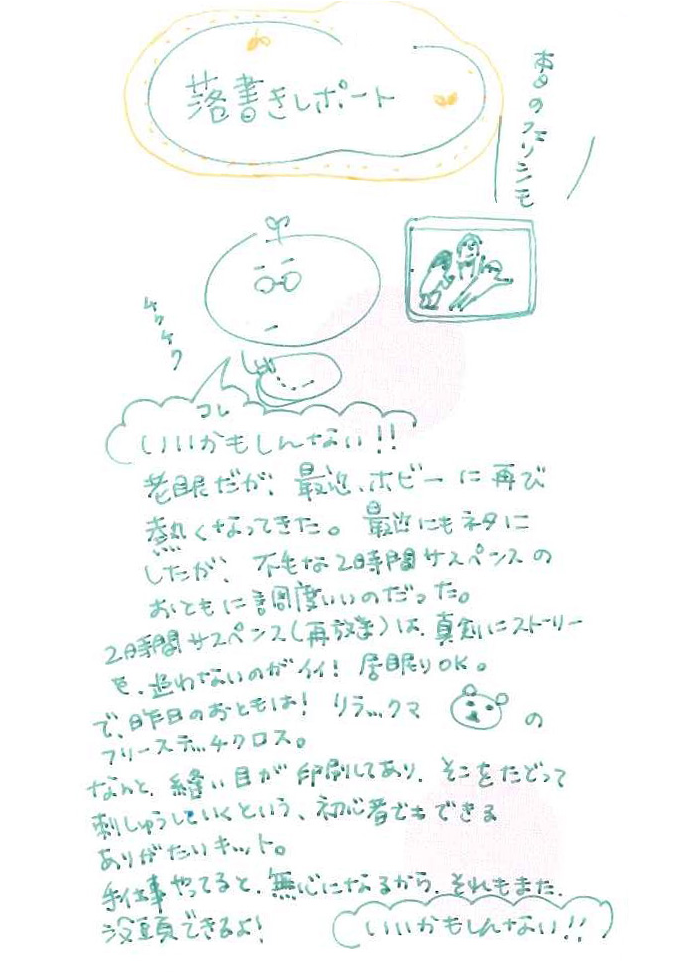 落書きレポート
春のフリシモ
チクチク
コレ
いいかもしんない!!
老眼だが、最近、ホビーに再び
熱くなってきた。最近にもネタに
したが、不毛な2時間サスペンスの
おともに調度いいのだった。
2時間サスペンス(再放送)は、真剣にストーリー
を、追わないのがイイ!居眠りOK。
で、昨日のおともは!リラックマの
フリーステッチクロス。
なんと、縫い目が印刷してあり、そこをたどって
刺しゅうしていくという、初心者でもできる
ありがたいキット。
手仕事やってると、無心になるから、それもまた、
没頭できるよ!
いいかもしんない!!